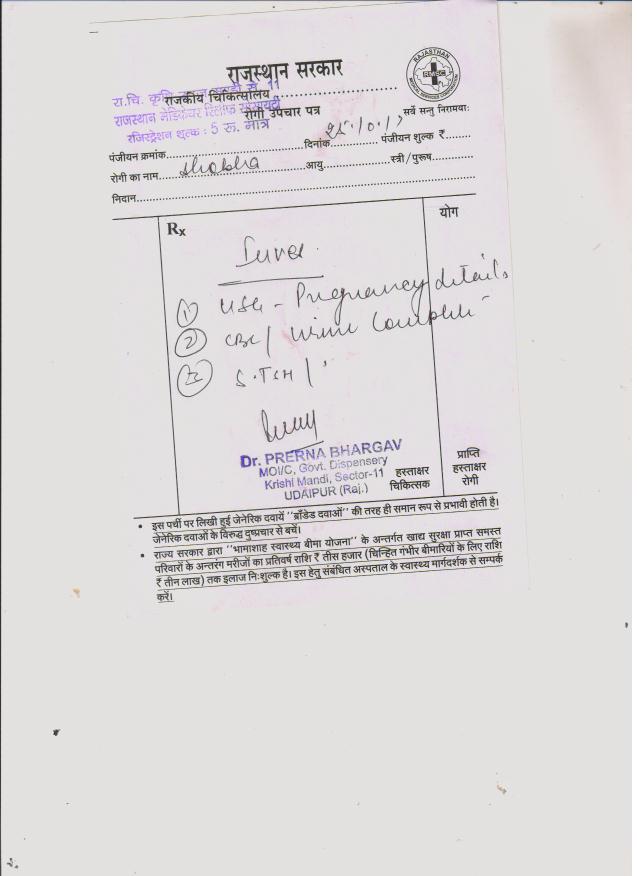 राजस्थान सरकार
RAJASTHAN
RMSC
MEDICAL SERVICES CORPORATION
रा.चि. कृषि 11
राजकीय चिकित्सालय
राजस्थान मेडिकेयर रिलीफ सोसायटी
रोगी उपचार पत्र
सर्वे सन्तु निरामयाः
रजिस्ट्रेशन शुल्क : 5 रू. मात्र
पंजीयन क्रमांक दिनांक पंजीयन शुल्क ₹
रोगी का नाम Shobha आयु स्त्री/पुरूष
निदान
Rx योग
① USG - Pregnancy details
② CBC / Urine Complete
S.TSH /
Dr. PRERNA BHARGAV
MOI/C, Govt. Dispensery
Krishi Mandi, Sector-11
UDAIPUR (Raj.)
हस्ताक्षर
चिकित्सक
प्राप्ति
हस्ताक्षर
रोगी
• इस पर्ची पर लिखी हुई जेनेरिक दवायें ''ब्राँडेड दवाओं'' की तरह ही समान रूप से प्रभावी होती है।
जेनेरिक दवाओं के विरुद्ध दुष्प्रचार से बचें।
• राज्य सरकार द्वारा ''भामाशाह स्वास्थ्य बीमा योजना'' के अन्तर्गत खाद्य सुरक्षा प्राप्त समस्त
परिवारों के अन्तरंग मरीजों का प्रतिवर्ष राशि ₹ तीस हजार (चिन्हित गंभीर बीमारियों के लिए राशि
₹ तीन लाख) तक इलाज निःशुल्क है। इस हेतु संबंधित अस्पताल के स्वास्थ्य मार्गदर्शक से सम्पर्क
करें।